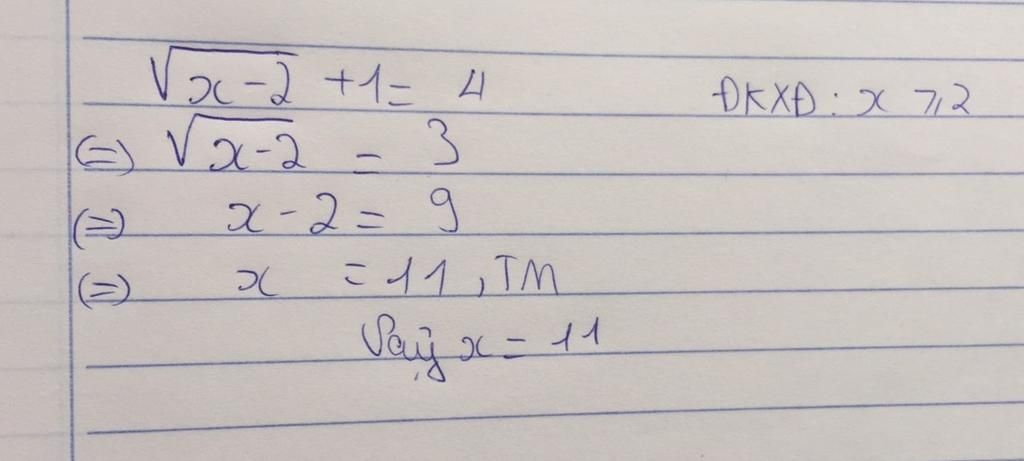 √(x-2) +1= 4 ĐKXĐ: x ⩾2
(=) √(x-2) = 3
(=) x-2 = 9
(=) x = 11, TM
Vậy x = 11